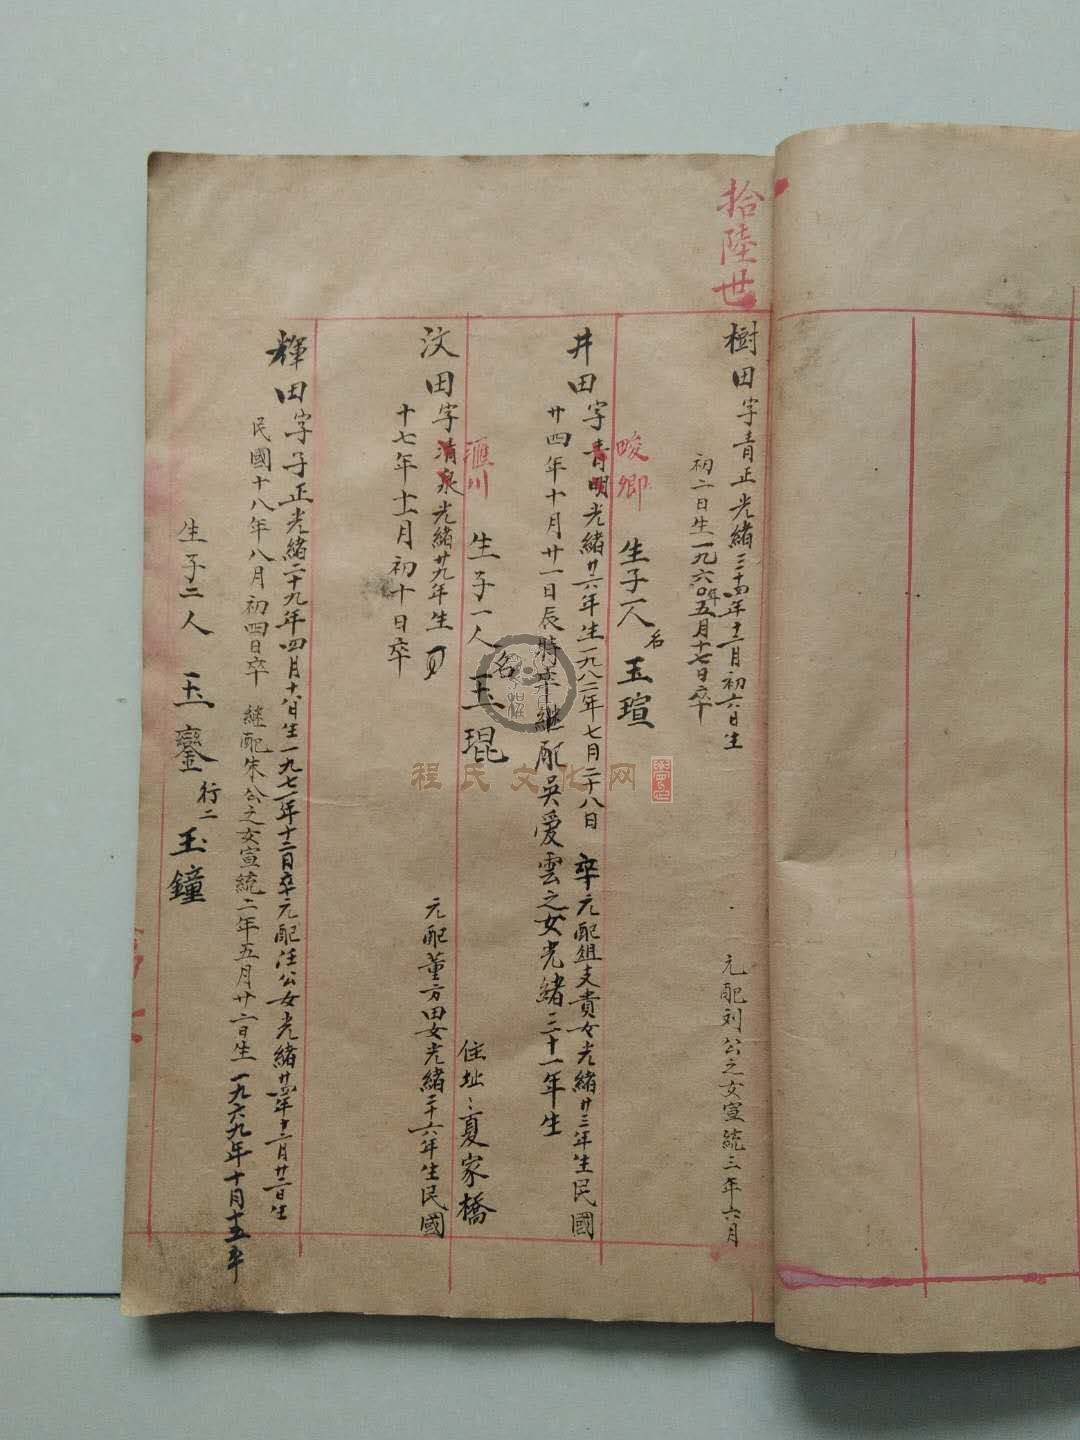 拾陸世
樹田字青正光緒三十四年十二月初六日生
元配刘公之女宣統三年六月
初二日生一九六〇年五月十七日卒
生子一人名玉瑄
畯卿
井田字青明光緒廿六年生一九八二年七月二十八日卒元配組支貴女光緒廿三年生民國
廿四年十月廿一日辰時卒継配吳愛雲之女光緒三十一年生
生子一人名玉琨
住址：夏家橋
滙川
汶田字清泉光緒廿九年生
元配董方田女光緒二十六年生民國
十七年十二月初十日卒
輝田字子正光緒二十九年四月十八日生一九七一年十二日卒元配汪公女光緒廿四年十二月廿二日生
民國十八年八月初四日卒
継配朱公之女宣統二年五月廿六日生一九六九年十月十五卒
生子二人
玉鑾
行二
玉鐘
程氏文化网